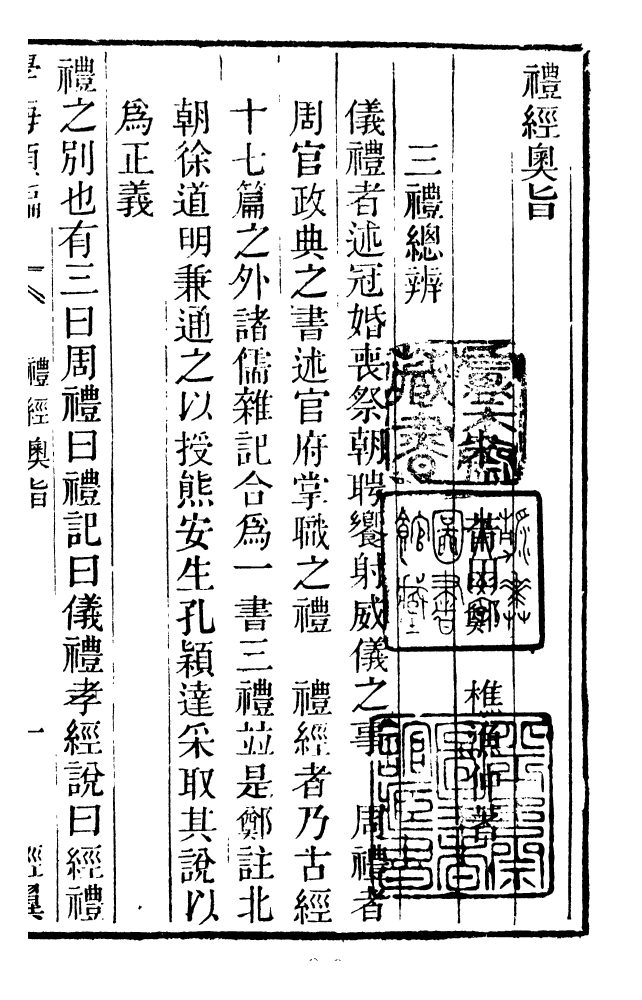 禮經奧旨
宋 莆田鄭 樵漁仲著
三禮總辨
儀禮者述冠婚喪祭朝聘饗射威儀之事 周禮者
周官政典之書述官府掌職之禮 禮經者乃古經
十七篇之外諸儒雜記合爲一書三禮並是鄭註北
朝徐道明兼通之以授熊安生孔穎達采取其說以
爲正義
禮之別也有三曰周禮曰禮記曰儀禮孝經說曰經禮
學海類編 禮經奧旨 一 經翼